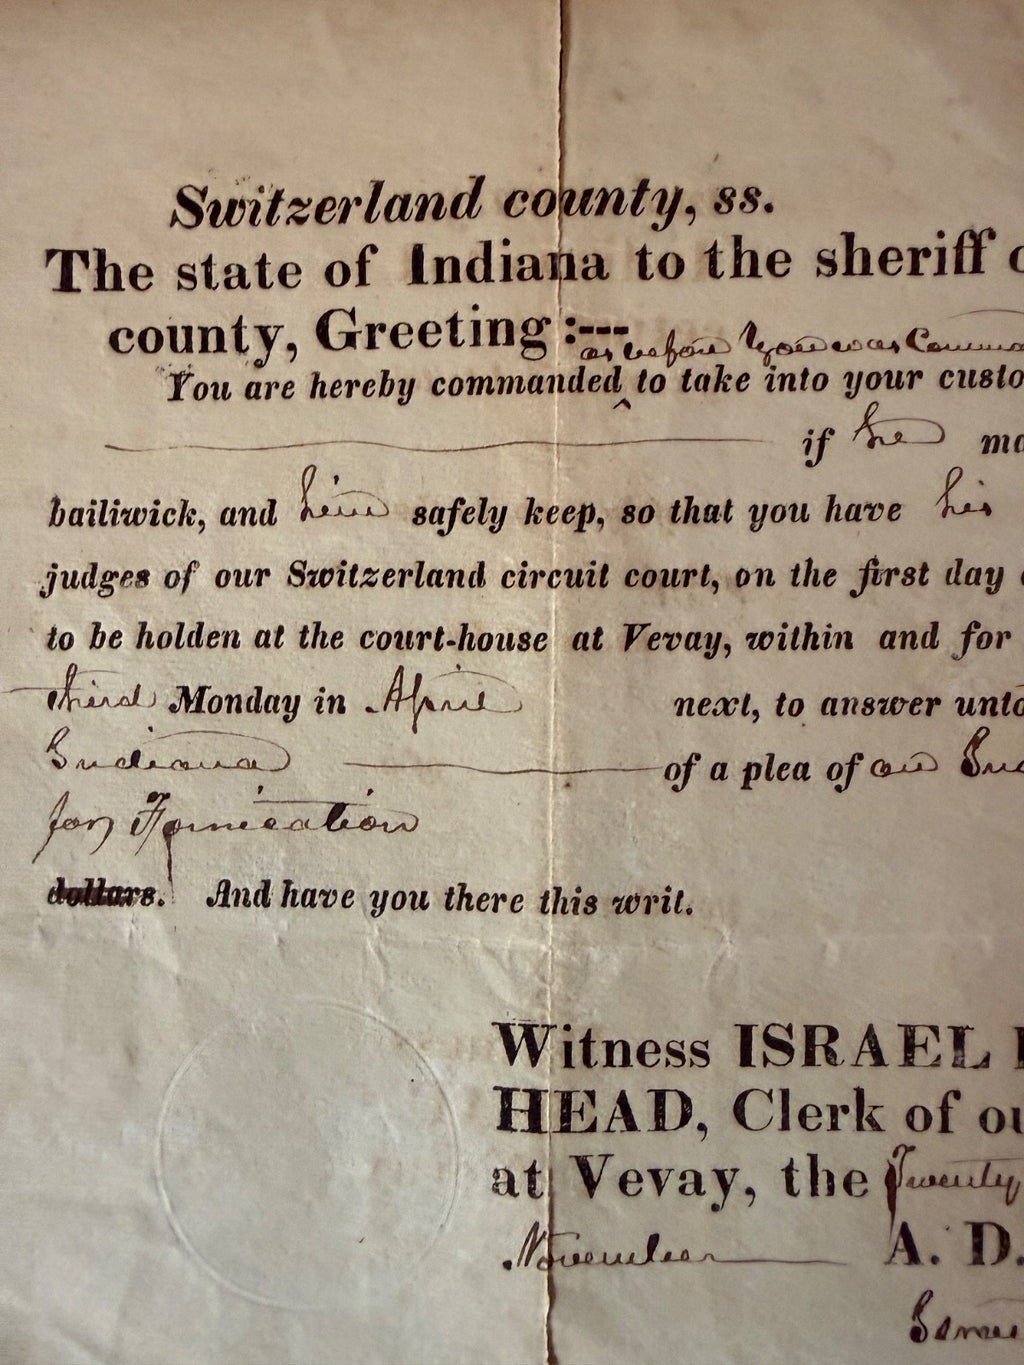 Switzerland county, ss.
The state of Indiana to the sheriff
county, Greeting :---
as before you was Comma
You are hereby commanded ‸ to take into your custo
if he ma
bailiwick, and him safely keep, so that you have his
judges of our Switzerland circuit court, on the first day
to be holden at the court-house at Vevay, within and for
third Monday in April next, to answer unto
Indiana of a plea of an In
for Fornication
dollars. And have you there this writ.
Witness ISRAEL
HEAD, Clerk of ou
at Vevay, the Twenty
November A. D.